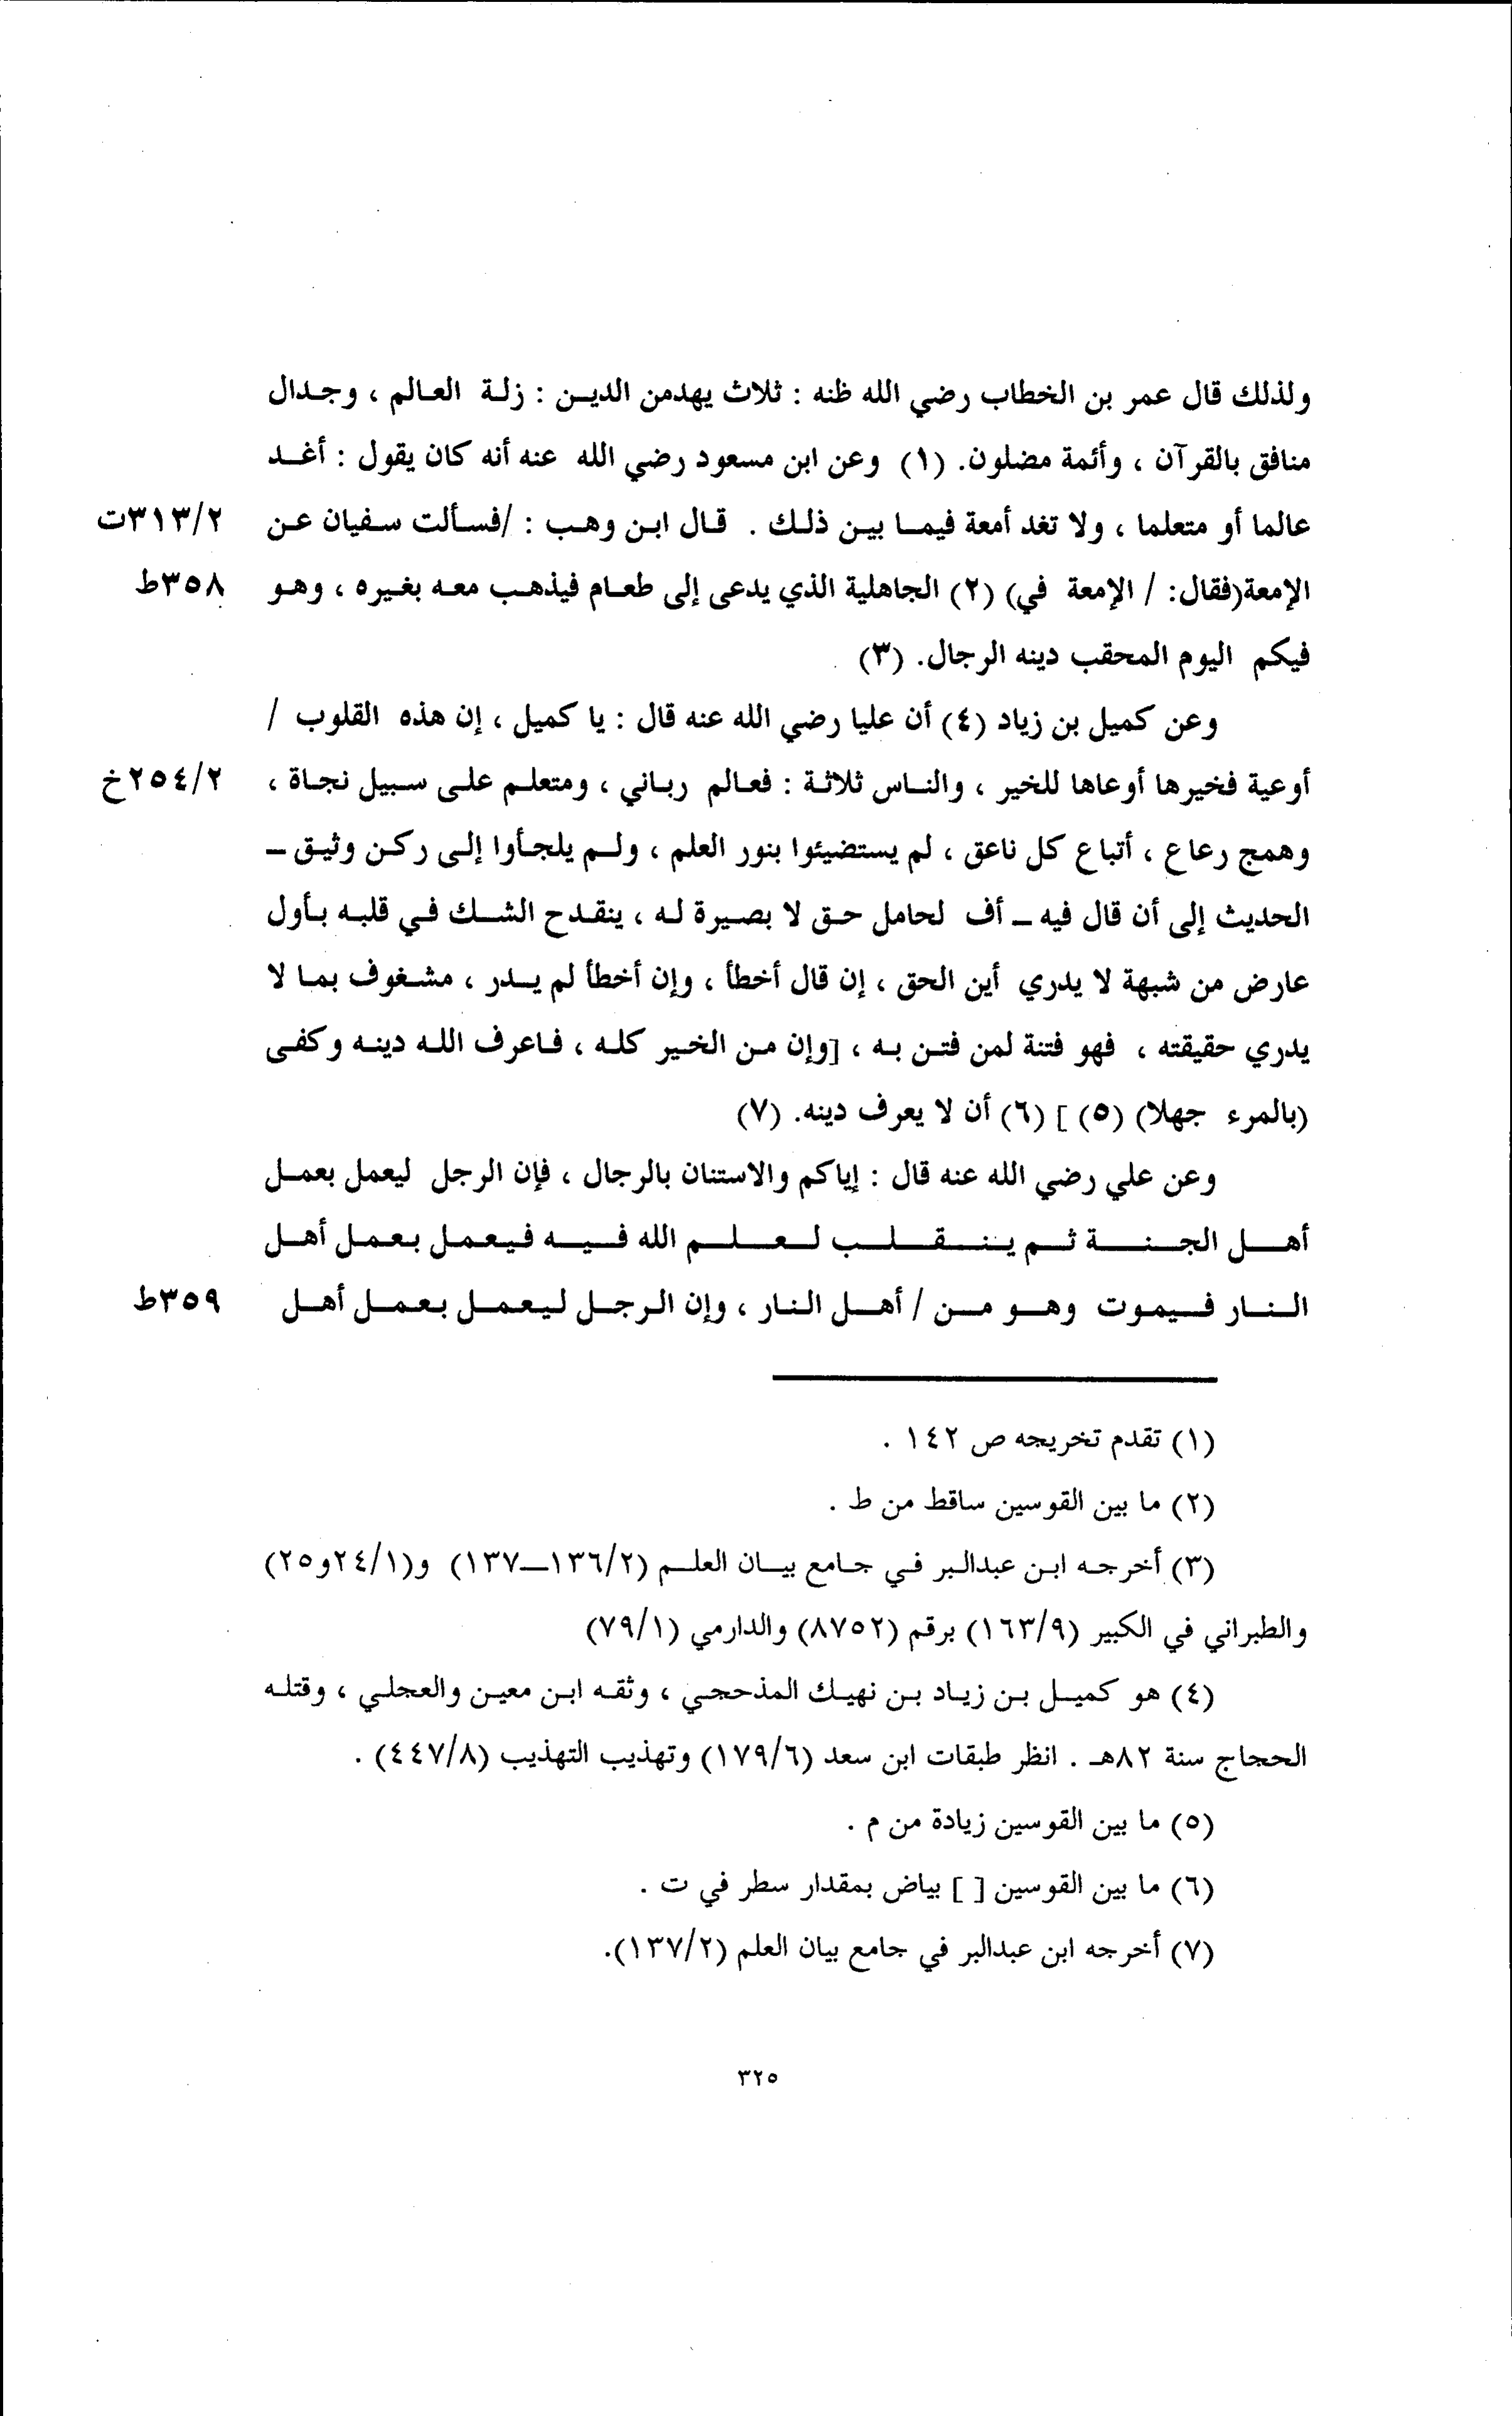 ولذلك قال عمر بن الخطاب رضي الله ظنه : ثلاث يهدمن الدين : زلة العالم ، وجدال
منافق بالقرآن ، وأئمة مضلون. (١) وعن ابن مسعود رضي الله عنه أنه كان يقول : أغد
عالما أو متعلما ، ولا تغد أمعة فيما بين ذلك . قال ابن وهب : /فسألت سفيان عن ٣١٣/٢ت
الإمعة(فقال: / الإمعة في) (٢) الجاهلية الذي يدعى إلى طعام فيذهب معه بغيره ، وهو ٣٥٨ط
فيكم اليوم المحقب دينه الرجال. (٣)
وعن كميل بن زياد (٤) أن عليا رضي الله عنه قال : يا كميل ، إن هذه القلوب /
أوعية فخيرها أوعاها للخير ، والناس ثلاثة : فعالم رباني ، ومتعلم على سبيل نجاة ، ٢٥٤/٢خ
وهمج رعاع ، أتباع كل ناعق ، لم يستضيئوا بنور العلم ، ولم يلجأوا إلى ركن وثيق ـ
الحديث إلى أن قال فيه ـ أف لحامل حق لا بصيرة له ، ينقدح الشك في قلبه بأول
عارض من شبهة لا يدري أين الحق ، إن قال أخطأ ، وإن أخطأ لم يدر ، مشغوف بما لا
يدري حقيقته ، فهو فتنة لمن فتن به ، [وإن من الخير كله ، فاعرف الله دينه وكفى
(بالمرء جهلا) (٥) ] (٦) أن لا يعرف دينه. (٧)
وعن علي رضي الله عنه قال : إياكم والاستنان بالرجال ، فإن الرجل ليعمل بعمل
أهل الجنة ثم ينقلب لعلم الله فيه فيعمل بعمل أهل
النار فيموت وهو من / أهل النار ، وإن الرجل ليعمل بعمل أهل ٣٥٩ط
(١) تقدم تخريجه ص ١٤٢ .
(٢) ما بين القوسين ساقط من ط .
(٣) أخرجه ابن عبدالبر في جامع بيان العلم (١٣٦/٢ـ١٣٧) و(٢٤/١و٢٥)
والطبراني في الكبير (١٦٣/٩) برقم (٨٧٥٢) والدارمي (٧٩/١)
(٤) هو كميل بن زياد بن نهيك المذحجي ، وثقه ابن معين والعجلي ، وقتله
الحجاج سنة ٨٢هـ . انظر طبقات ابن سعد (١٧٩/٦) وتهذيب التهذيب (٤٤٧/٨) .
(٥) ما بين القوسين زيادة من م .
(٦) ما بين القوسين [ ] بياض بمقدار سطر في ت .
(٧) أخرجه ابن عبدالبر في جامع بيان العلم (١٣٧/٢).
٣٢٥